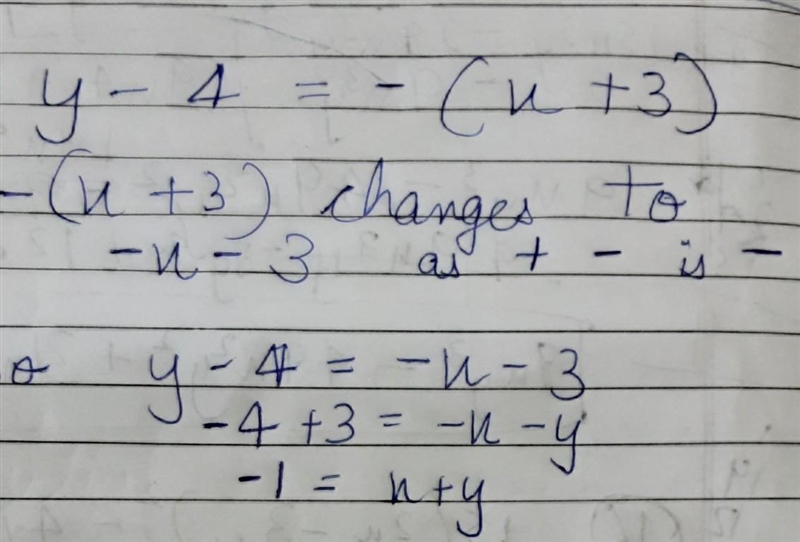 y - 4 = - (x + 3)
-(x + 3) changes to
-x - 3 as + - is -
y - 4 = -x - 3
-4 + 3 = -x - y
-1 = x + y